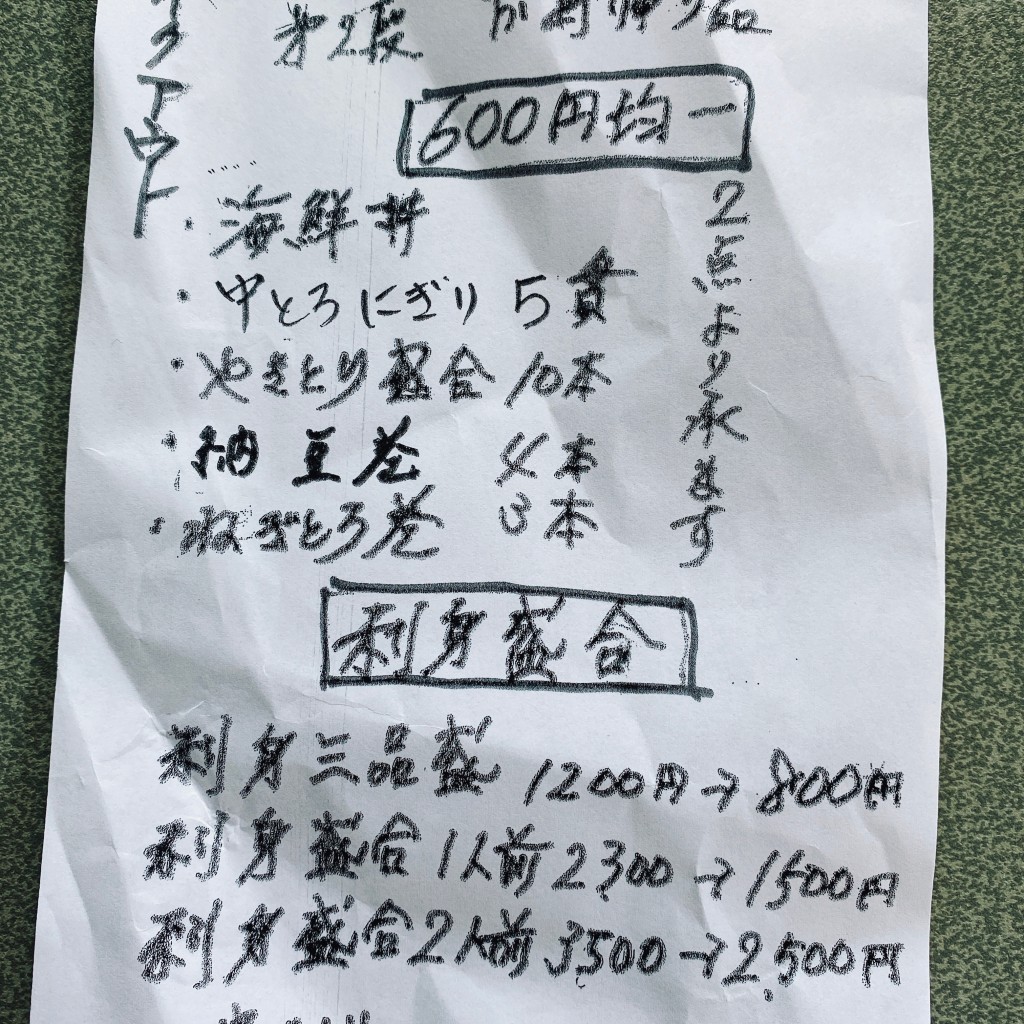 テイクアウト
第2段
お持帰り品
600円均一
・海鮮丼
・中とろにぎり 5貫
・やきとり盛合 10本
・納豆巻 4本
・ねぎとろ巻 3本
2点より承ます
刺身盛合
刺身三品盛 1200円→800円
刺身盛合1人前2300→1500円
刺身盛合2人前3500→2,500円